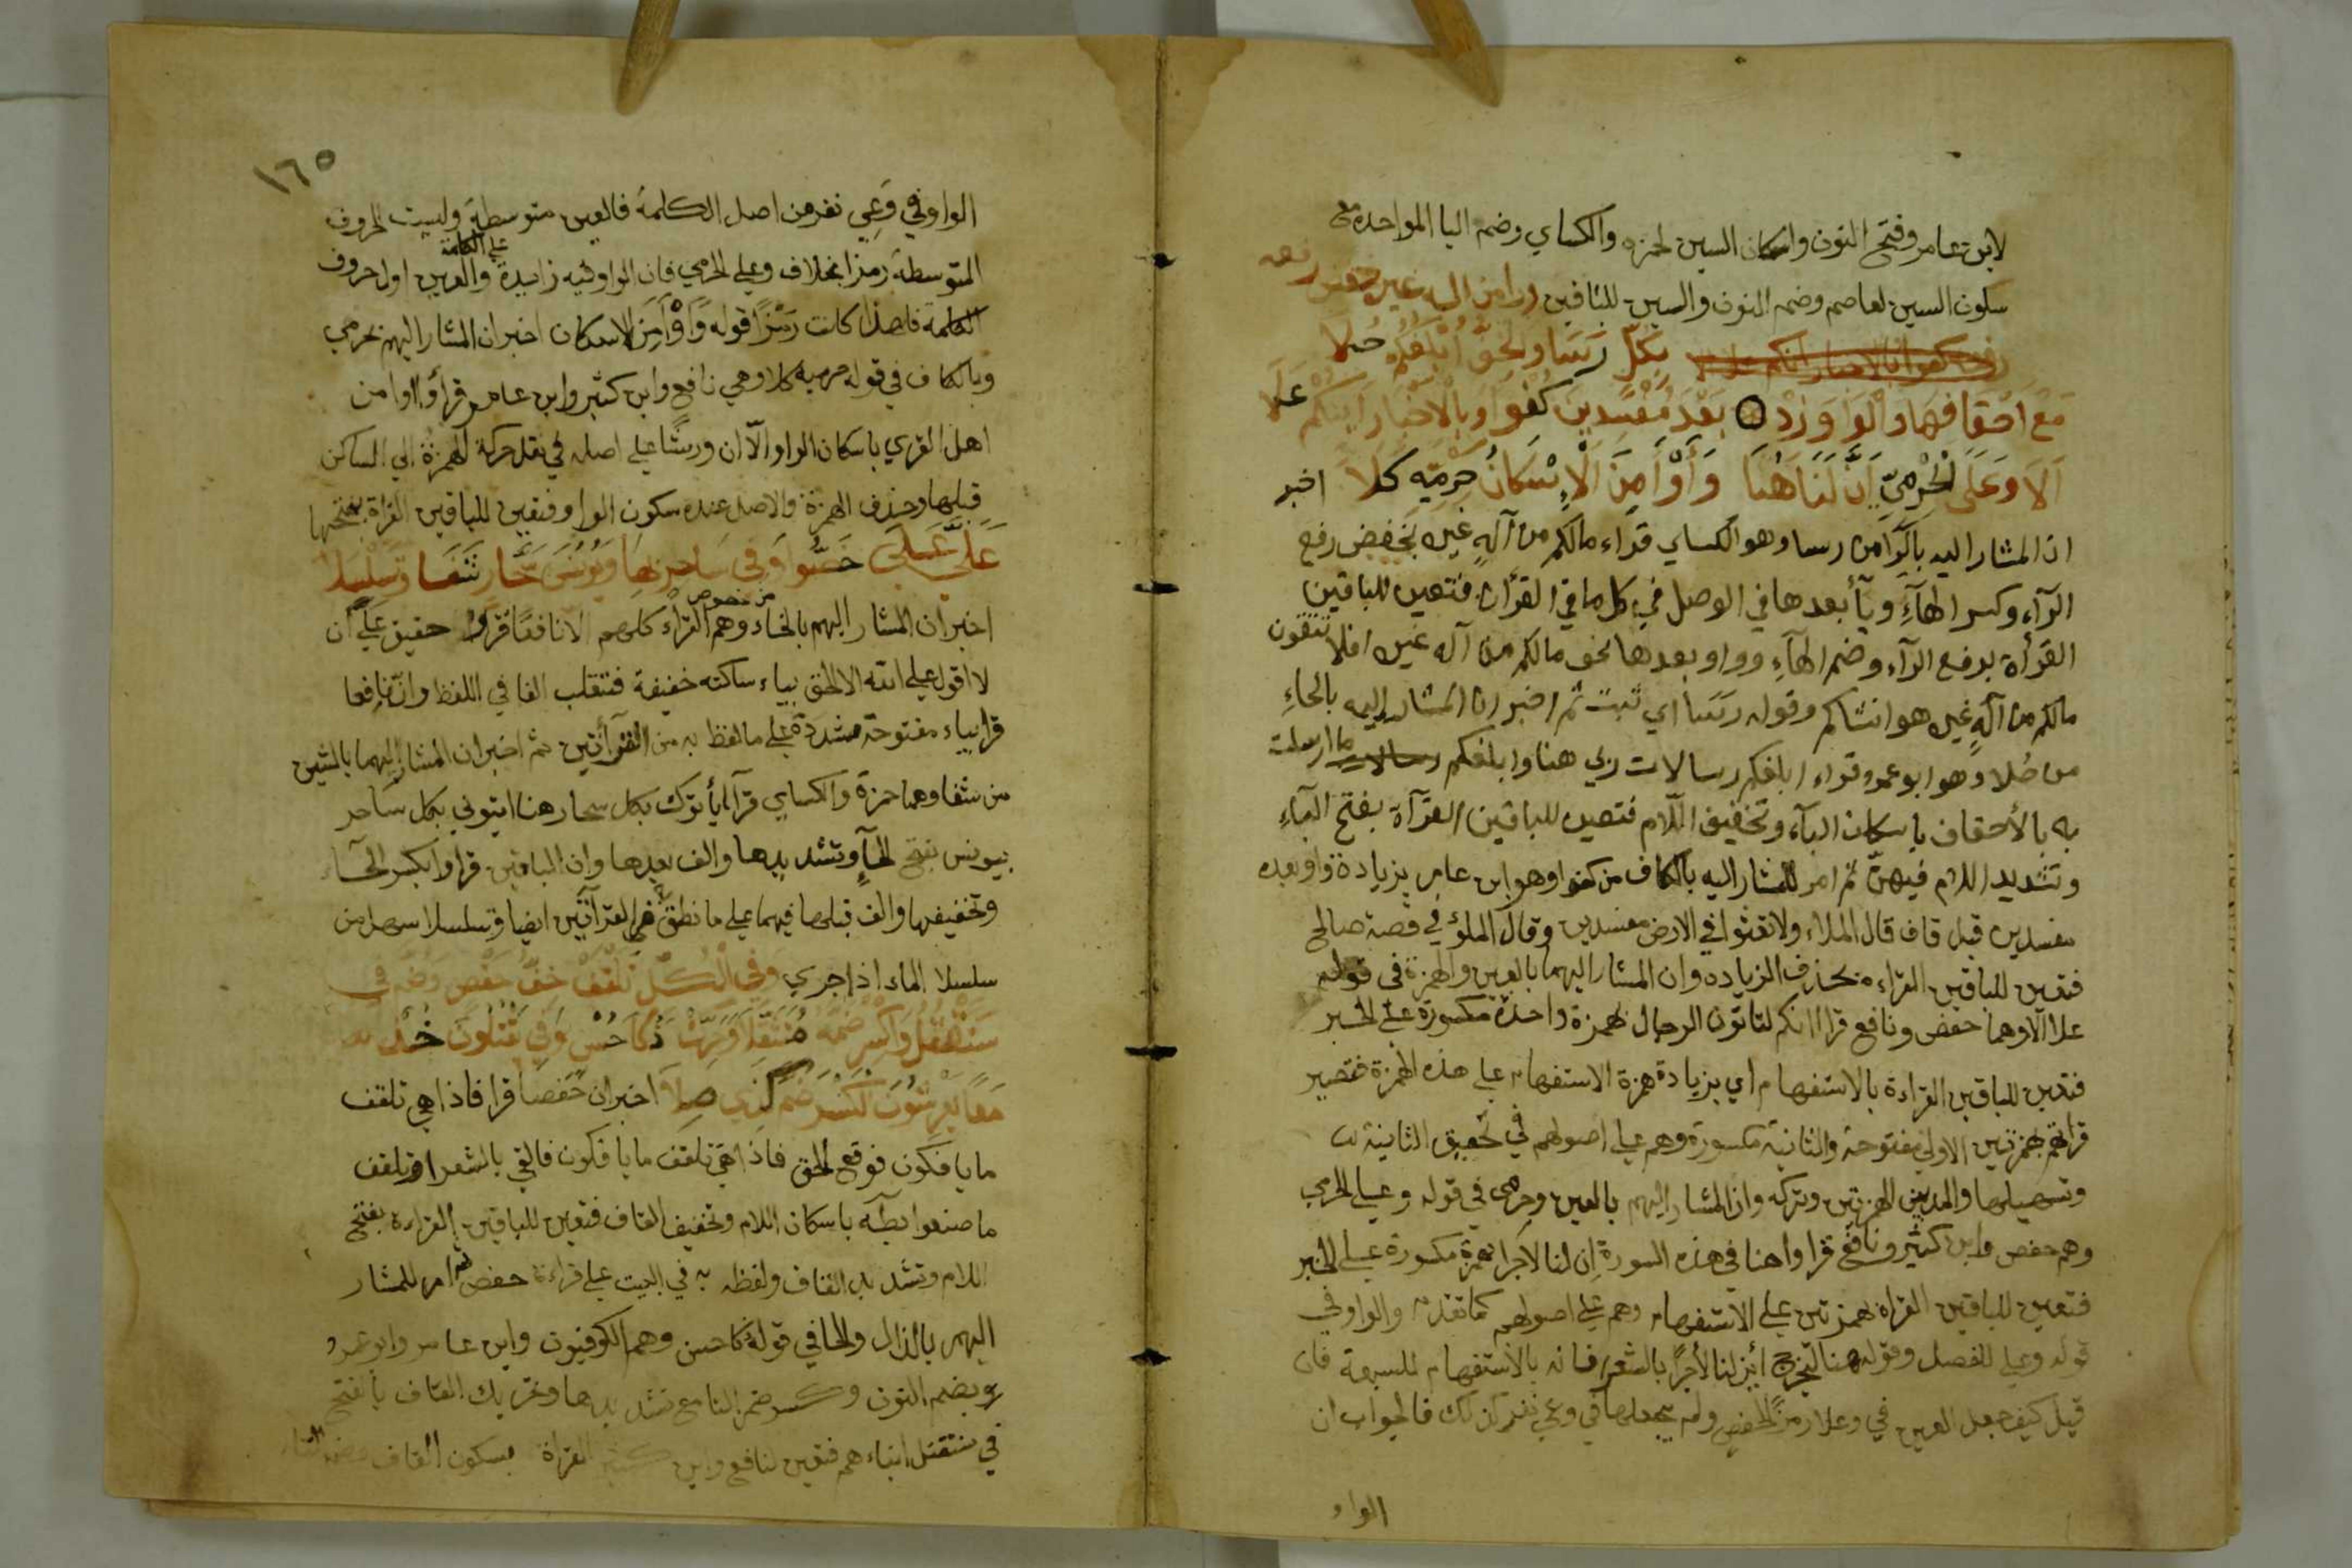 لابن عامر وفتح النون واسكان السين لحمزه والكساي وضم البا الواحده مع
سكون السين لعاصم وضم النون والسين للباقين ورا من اله غيره خفض رفعه
بكل رسا والخف ابلغكم حلا
مع احقافها والواو زد بعد مفسدين كفوا وبالاخبار انكم علا
الا وعلى الحرمي ان لنا هنا وأو أمن الاسكان حرميه كلا اخبر
ان المشار اليه بالرا من رسا وهو الكساي قراء مالكم من اله غيره بخفض رفع
الرآء وكسر الهآء ويآ بعدها في الوصل في كل ما في القرأن فتعين للباقين
القرأة برفع الرآء وضم الهآء وواو بعدها نحو مالكم من اله غيره افلا تتقون
مالكم من اله غيره هو انشاكم وقوله رسا اي ثبت ثم اخبر ان المشار اليه بالحاء
من حلا وهو ابو عمرو قراء ابلغكم رسالات ربي هنا وابلغكم ما ارسلت
به بالأحقاف باسكان البآء وتخفيف اللام فتعين للباقين القرآة بفتح البآء
وتشديد اللام فيهن ثم امر للمشار اليه بالكاف من كفوا وهو ابن عامر بزيادة واو بعده
مفسدين قبل قاف قال الملاء ولا تعثوا في الارض مفسدين وقال الملؤ في قصة صالح
فتعين للباقين القراءه بحذف الزياده وان المشار اليهما بالعين والهمزة في قوله
علا الا وهما حفص ونافع قراا انكم لتاتون الرجال بهمزة واحدة مكسورة على الخبر
فتعين للباقين القراءة بالاستفهام اي بزيادة همزة الاستفهام على هذه الهمزة فتصير
قراتهم بهمزتين الاولى مفتوحة والثانية مكسورة وهم على اصولهم في تحقيق الثانية
وتسهيلها والمد بين الهمزتين وتركه وان المشار اليهم بالعين وحرمي في قوله وعلى الحرمي
وهم حفص وابن كثير ونافع قراوا هنا في هذه السورة ان لنا لاجرا بهمزة مكسورة على الخبر
فتعين للباقين القراة بهمزتين على الاستفهام وهم على اصولهم كما تقدم والواو في
قوله وعلى للفصل وقوله هنا ليخرج أئن لنا لأجرا بالشعرا فانه بالاستفهام للسبعة فان
قيل كيف جعل العين في وعلا رمزا لحفص ولم يجعلها في وعي نفر كذلك فالجواب ان
الواو
١٦٥
الواو في وعي نفر من اصل الكلمة فالعين متوسطة وليست الحروف
المتوسطة رمزا بخلاف وعلى الحرمي فان الواو فيه زايدة على الكلمة والعين اول حروف
الكلمة فلهذا كانت رمزا قوله وأو أمن الاسكان اخبر ان المشار اليهم بحرمي
وبالكاف في قوله حرميه كلا وهي نافع وابن كثير وابن عامر قرأوا اوا من
اهل القري باسكان الواو الا ان ورشا على اصله في نقل حركة الهمزة الي الساكن
قبلها وحذف الهمزة والاصل عنده سكون الواو فتعين للباقين القراة بفتحها
علي على خصوا وفي ساحر بها ويونس سحار شفا وتسلسلا
اخبر ان المشار اليهم بالخاء من خصوص وهم القراء كلهم الا نافعا قراوا حقيق علي ان
لا اقول على الله الا الحق بياء ساكنه خفيفة فتقلب الفا في اللفظ وان نافعا
قرا بياء مفتوحة مشددة على ما لفظ به من القرآتين ثم اخبر ان المشار اليهما بالشين
من شفا وهما حمزة والكساي قرآ يأتوك بكل سحار هنا ايتوني بكل ساحر
بيونس بفتح الحآ وتشديدها والف بعدها وان الباقين قراوا بكسر الحاء
وتخفيفها والف قبلها فيهما على ما نطق به في القرآتين ايضا وتسلسلا سهل من
سلسلا الماء اذا جري وفي الكل تلقف خف حفص وضم في
سنقتل واكسر ضمه متثقلا وحرك ذكا حسن وفي يقتلون خذ
معا يعرشون الكسر ضم كذي صلا اخبر ان حفصا قرا فاذا هي تلقف
ما يافكون فوقع الحق فاذا هي تلقف ما يافكون فالقي بالشعرا وتلقف
ما صنعوا بطه باسكان اللام وتخفيف القاف فتعين للباقين القراءة بفتح
اللام وتشديد القاف ولفظه به في البيت على قراءة حفص ثم امر للمشار
اليهم بالذال والحا في قوله ذكا حسن وهم الكوفيون وابن عامر وابو عمرو
بضم النون وكسر ضم التا مع تشديدها وتحريك القاف بالفتح
في سنقتل ابناءهم فتعين لنافع وابن كثير القراة بسكون القاف وضم التاء